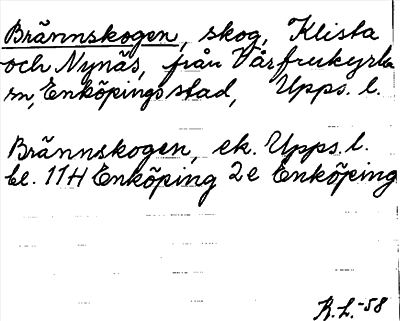 Brännskogen, skog, Klista
och Nynäs, från Vårfrukyrka
sn, Enköpings stad, Upps. l.
Brännskogen, ek. Upps. l.
bl. 11H Enköping 2e Enköping
R.L.-58